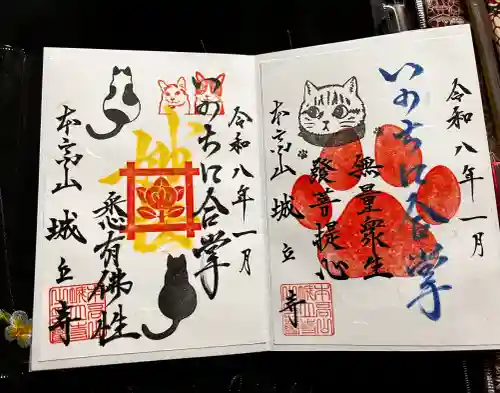 令和八年一月
いのちに合掌
無量衆生
發菩提心
本高山 城立寺
令和八年一月
いのちに合掌
悉有佛性
本高山 城立寺